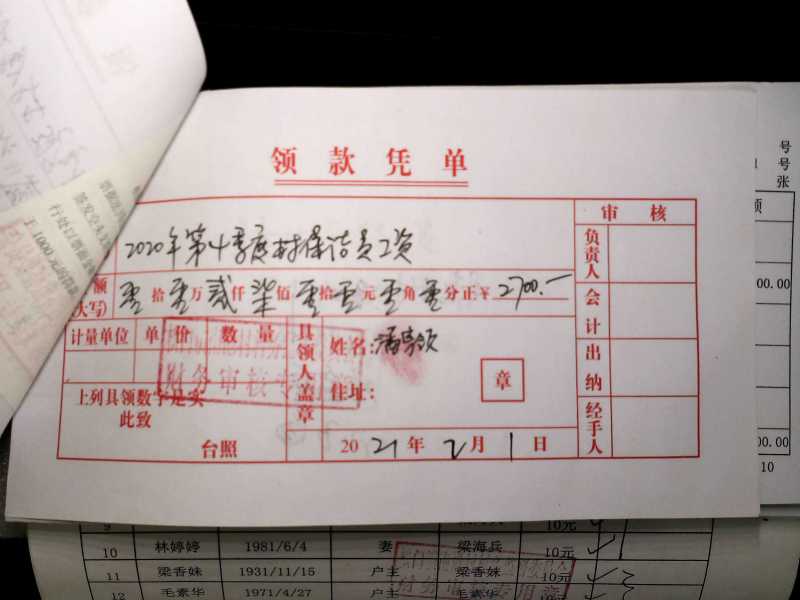 领款凭单
2020年第4季度村保洁员工资
审核
额
(大写) 零拾零万贰仟柒佰零拾零元零角零分正¥2700.-
计量单位 单价 数量
具领人盖章
姓名:
住址:
章
财务审核专用章
上列具领数字是实
此致
台照
2021年2月1日
负责人
会计
出纳
经手人
号
号
张
额
00.00
00.00
10
9 10元
10 林婷婷 1981/6/4 妻 梁海兵 10元
11 梁香妹 1931/11/15 户主 梁香妹 10元
12 毛素华 1971/4/27 户主 毛素华